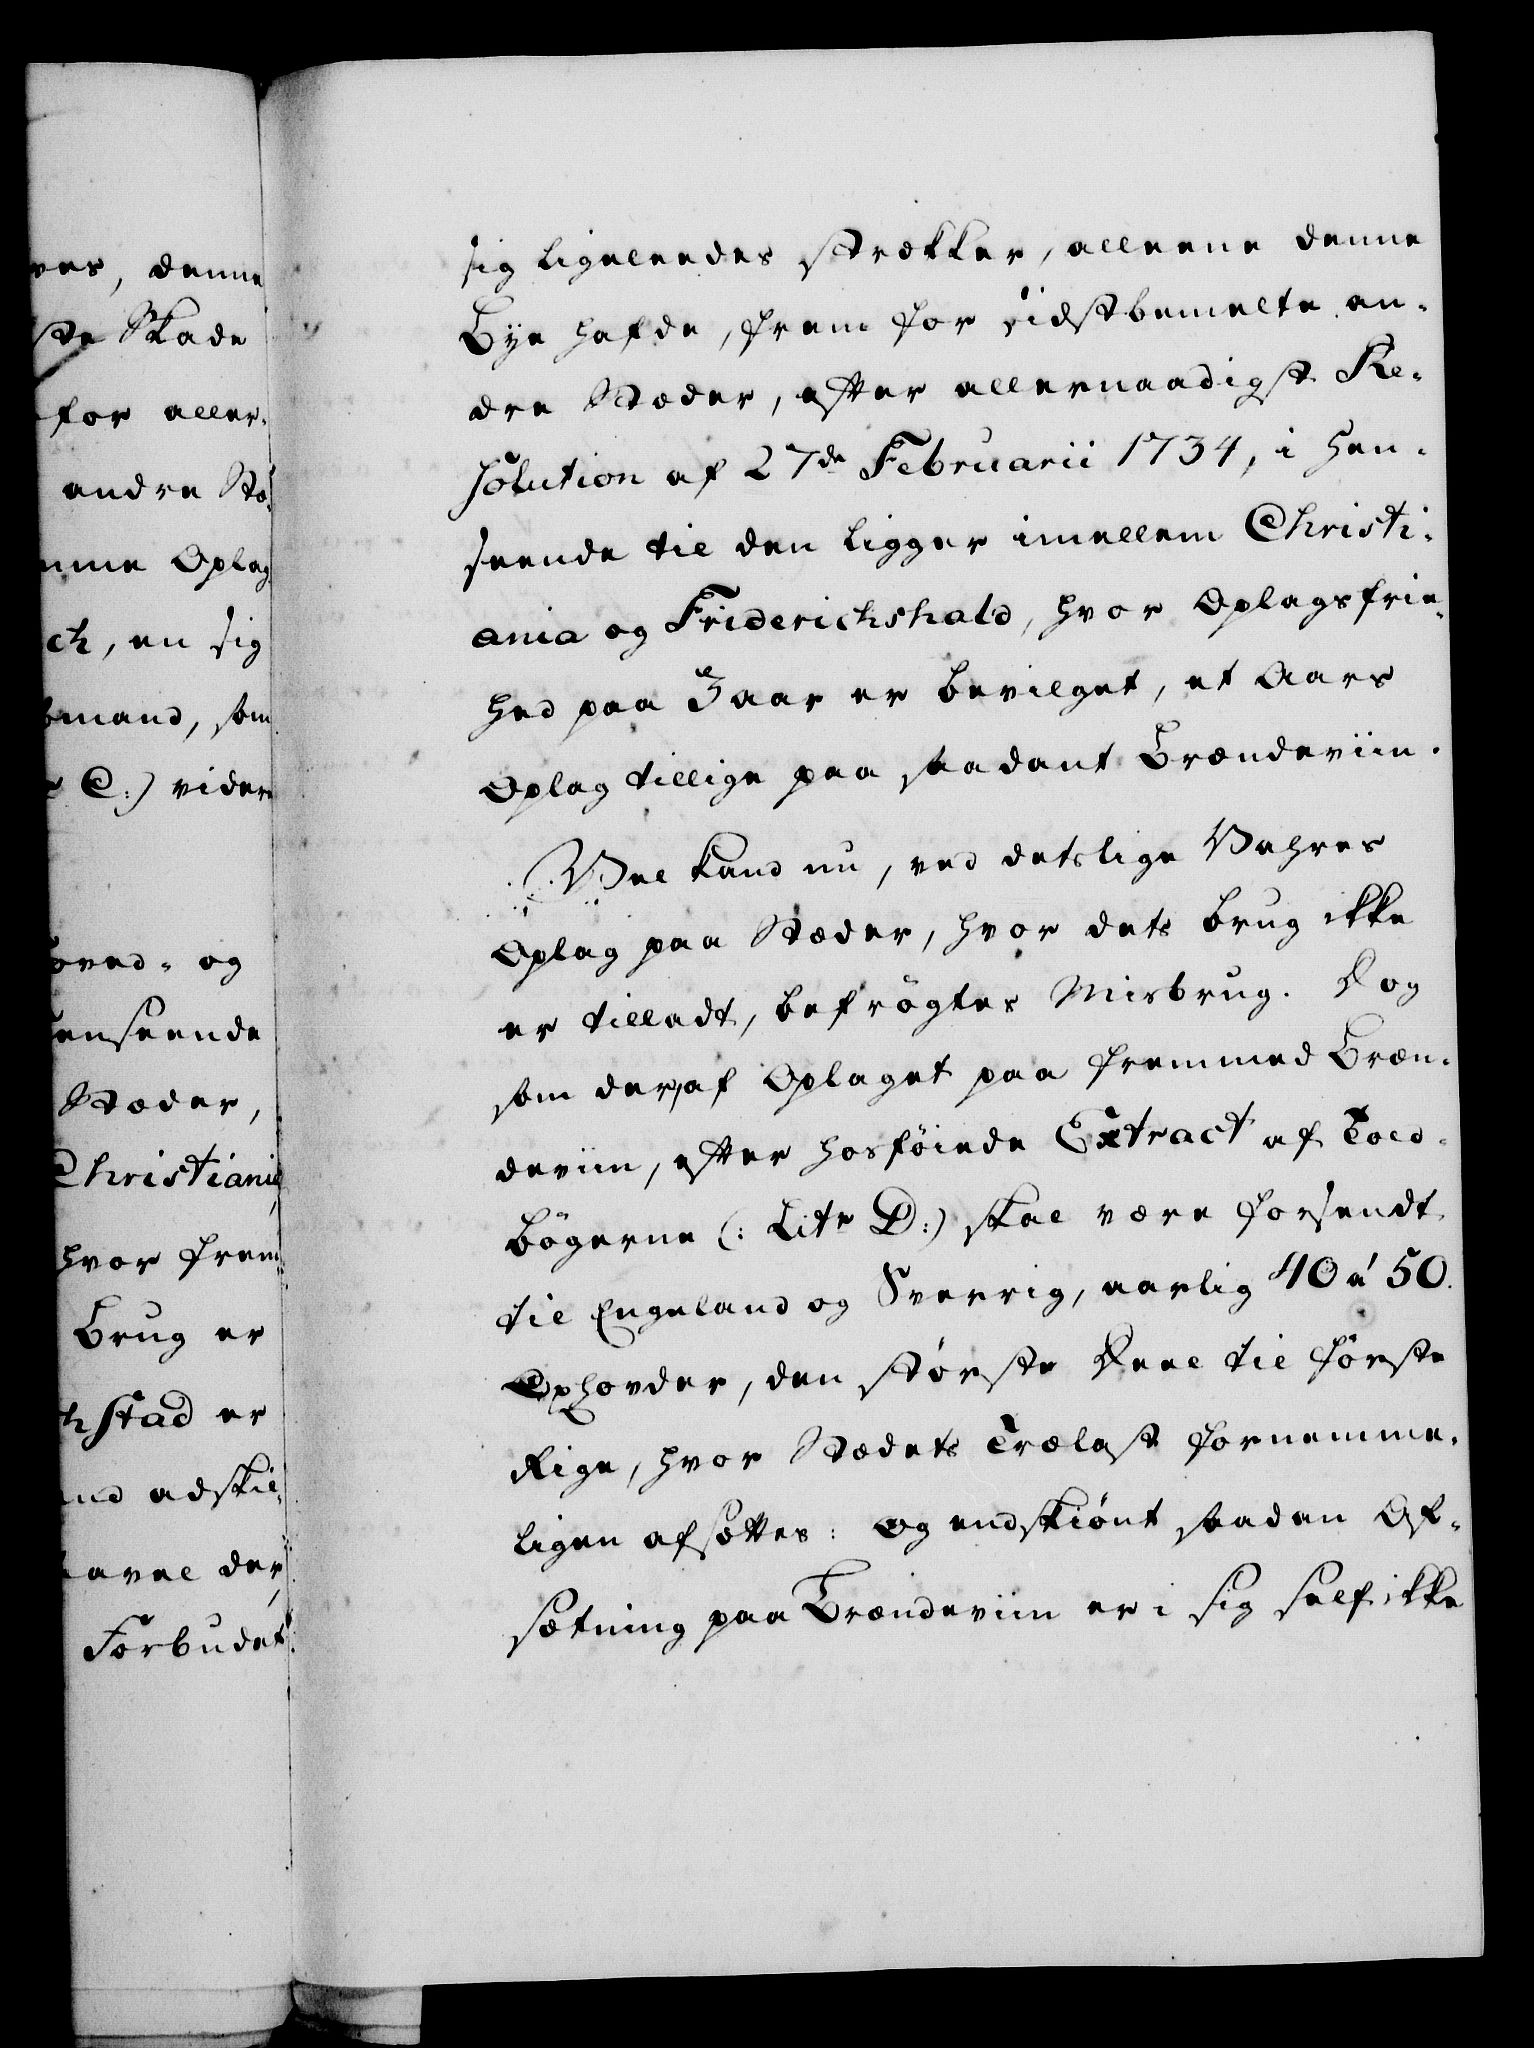 ves, denne
ste Skade
for aller-
andre Stæ-
mme Oplag
ch, en sig
bmand, som
C:) videre
oved- og
henseende
Stæder,
Christiania,
hvor frem-
Brug er
chstad er
ind adskil-
tavel der,
Forbudet
sig ligeleedes strekker, alleene denne
Bye hafde, frem for sidstbemelte an-
dre Stæder, efter allernaadigst Re-
solution af 27de Februarii 1734, i hen-
seende til den ligger imellem Christi-
ania og Friderichshald, hvor Oplagsfrie-
hed paa 3 aar er bevilget, et Aars
Oplag tillige paa saadant Brændeviin.
Vel kand nu, ved detslige Vahres
Oplag paa Stæder, hvor dets brug ikke
er tilladt, befrögtes Misbrug. Dog
som der, af Oplaget paa fremmed Bræn-
deviin, efter hosföiede Extract af Told-
bögerne (: Litr D:) skal være forsendt
til Engeland og Sverrig, aarlig 40 á 50.
Oxhovder, den störste Deel til förste
Rige, hvor Stædets Trælast fornemme-
ligen afsættes: Og endskiönt saadan Af-
sætning paa Brændeviin er i sig self ikke